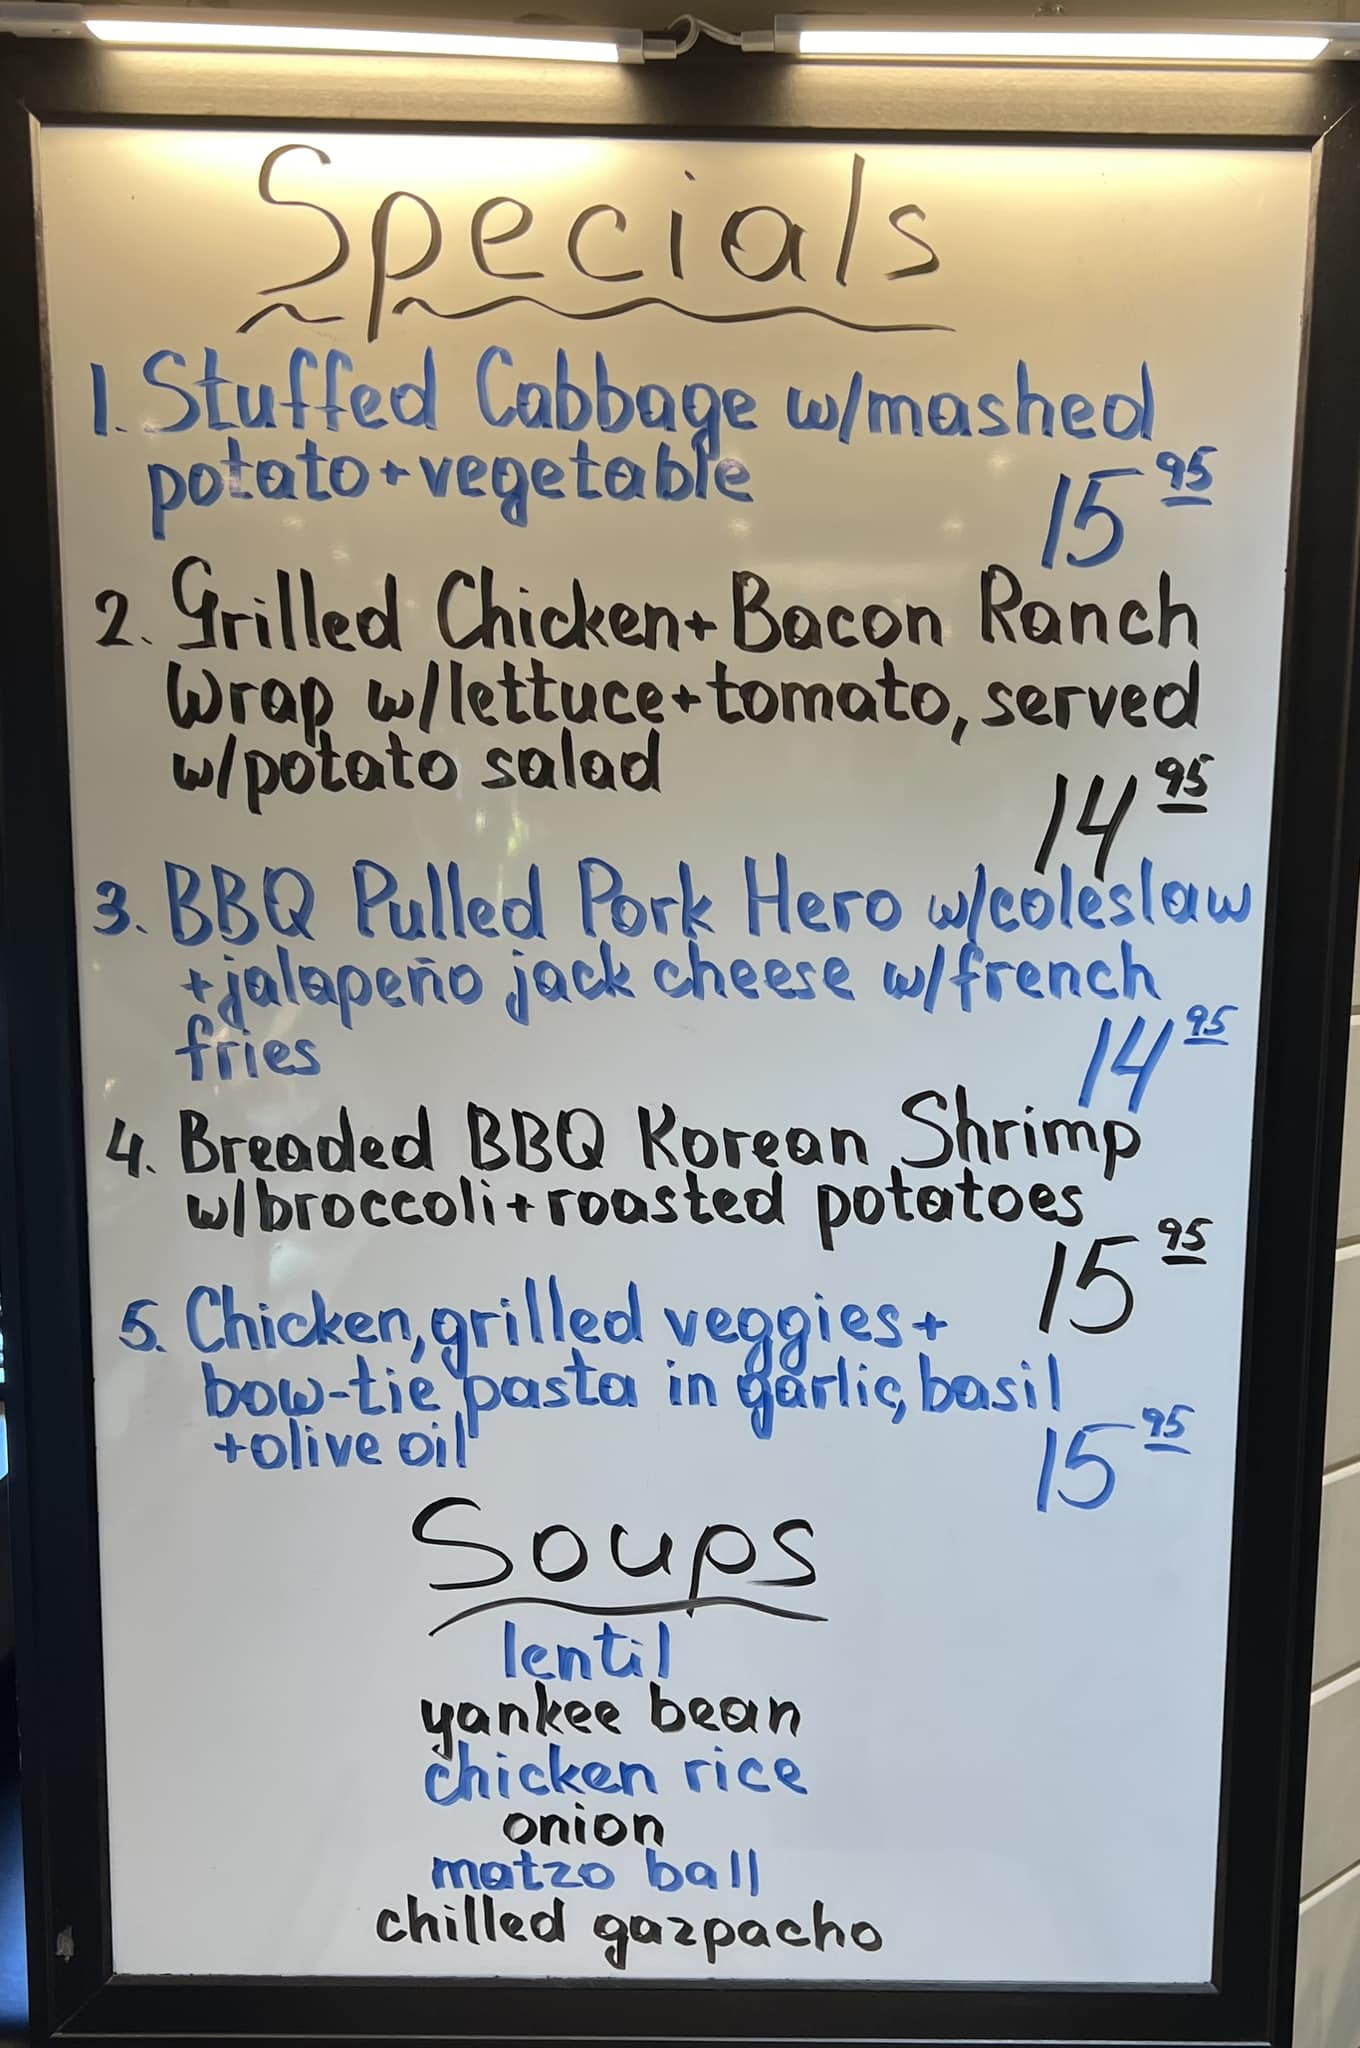 Specials
1. Stuffed Cabbage w/mashed
potato+vegetable
15 95
2. Grilled Chicken+Bacon Ranch
Wrap w/lettuce+tomato, served
w/potato salad
14 95
3. BBQ Pulled Pork Hero w/coleslaw
+jalapeño jack cheese w/french
fries
14 95
4. Breaded BBQ Korean Shrimp
w/broccoli+roasted potatoes
15 95
5. Chicken, grilled veggies+
bow-tie pasta in garlic, basil
+olive oil
15 95
Soups
lentil
yankee bean
chicken rice
onion
matzo ball
chilled gazpacho